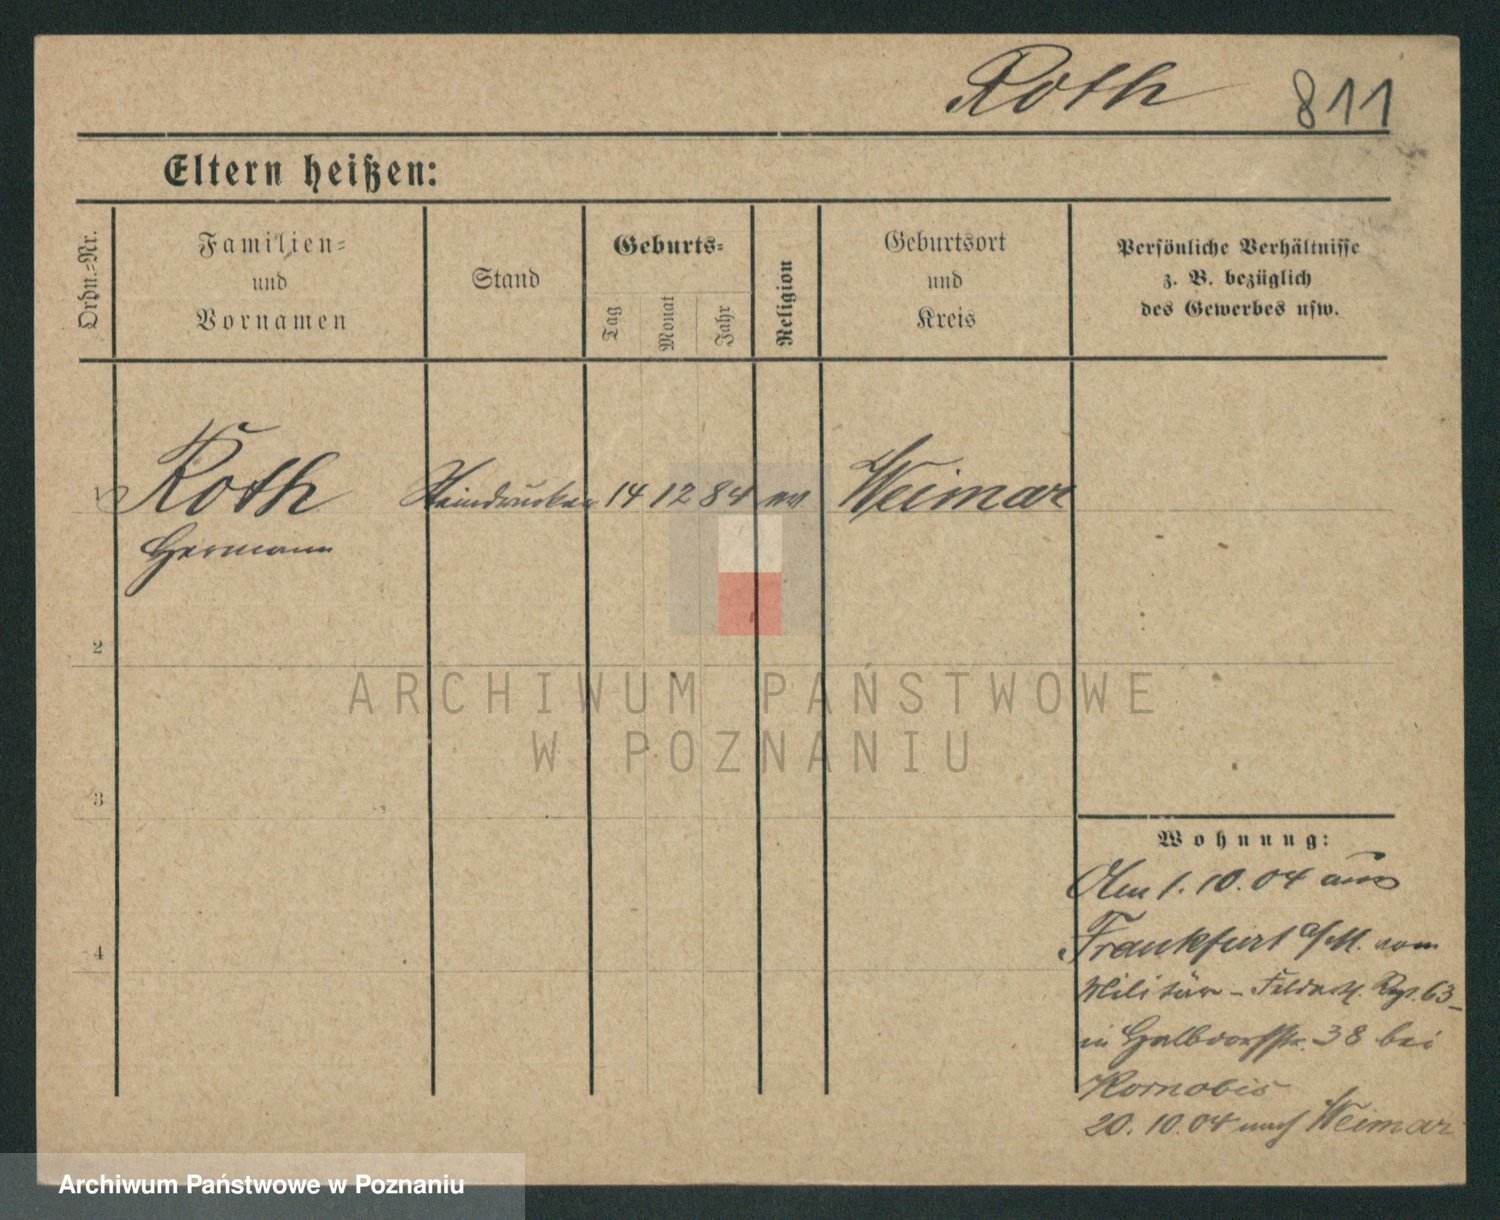 Roth 811
Eltern heißen:
Ordn.=Nr.
Familien=
und
Vornamen
Stand
Geburts=
Tag
Monat
Jahr
Religion
Geburtsort
und
Kreis
Persönliche Verhältnisse
z. B. bezüglich
des Gewerbes usw.
1 Roth Steindrucker 14 12 84 ev Weimar
Hermann
2
ARCHIWUM PAŃSTWOWE
W POZNANIU
3
4
Wohnung:
Am 1. 10. 04 aus
Frankfurt a/M. vom
Militär - Feldart. Rgt. 63 -
in Halbdorfstr. 38 bei
Kornobis
20. 10. 04 nach Weimar
Archiwum Państwowe w Poznaniu